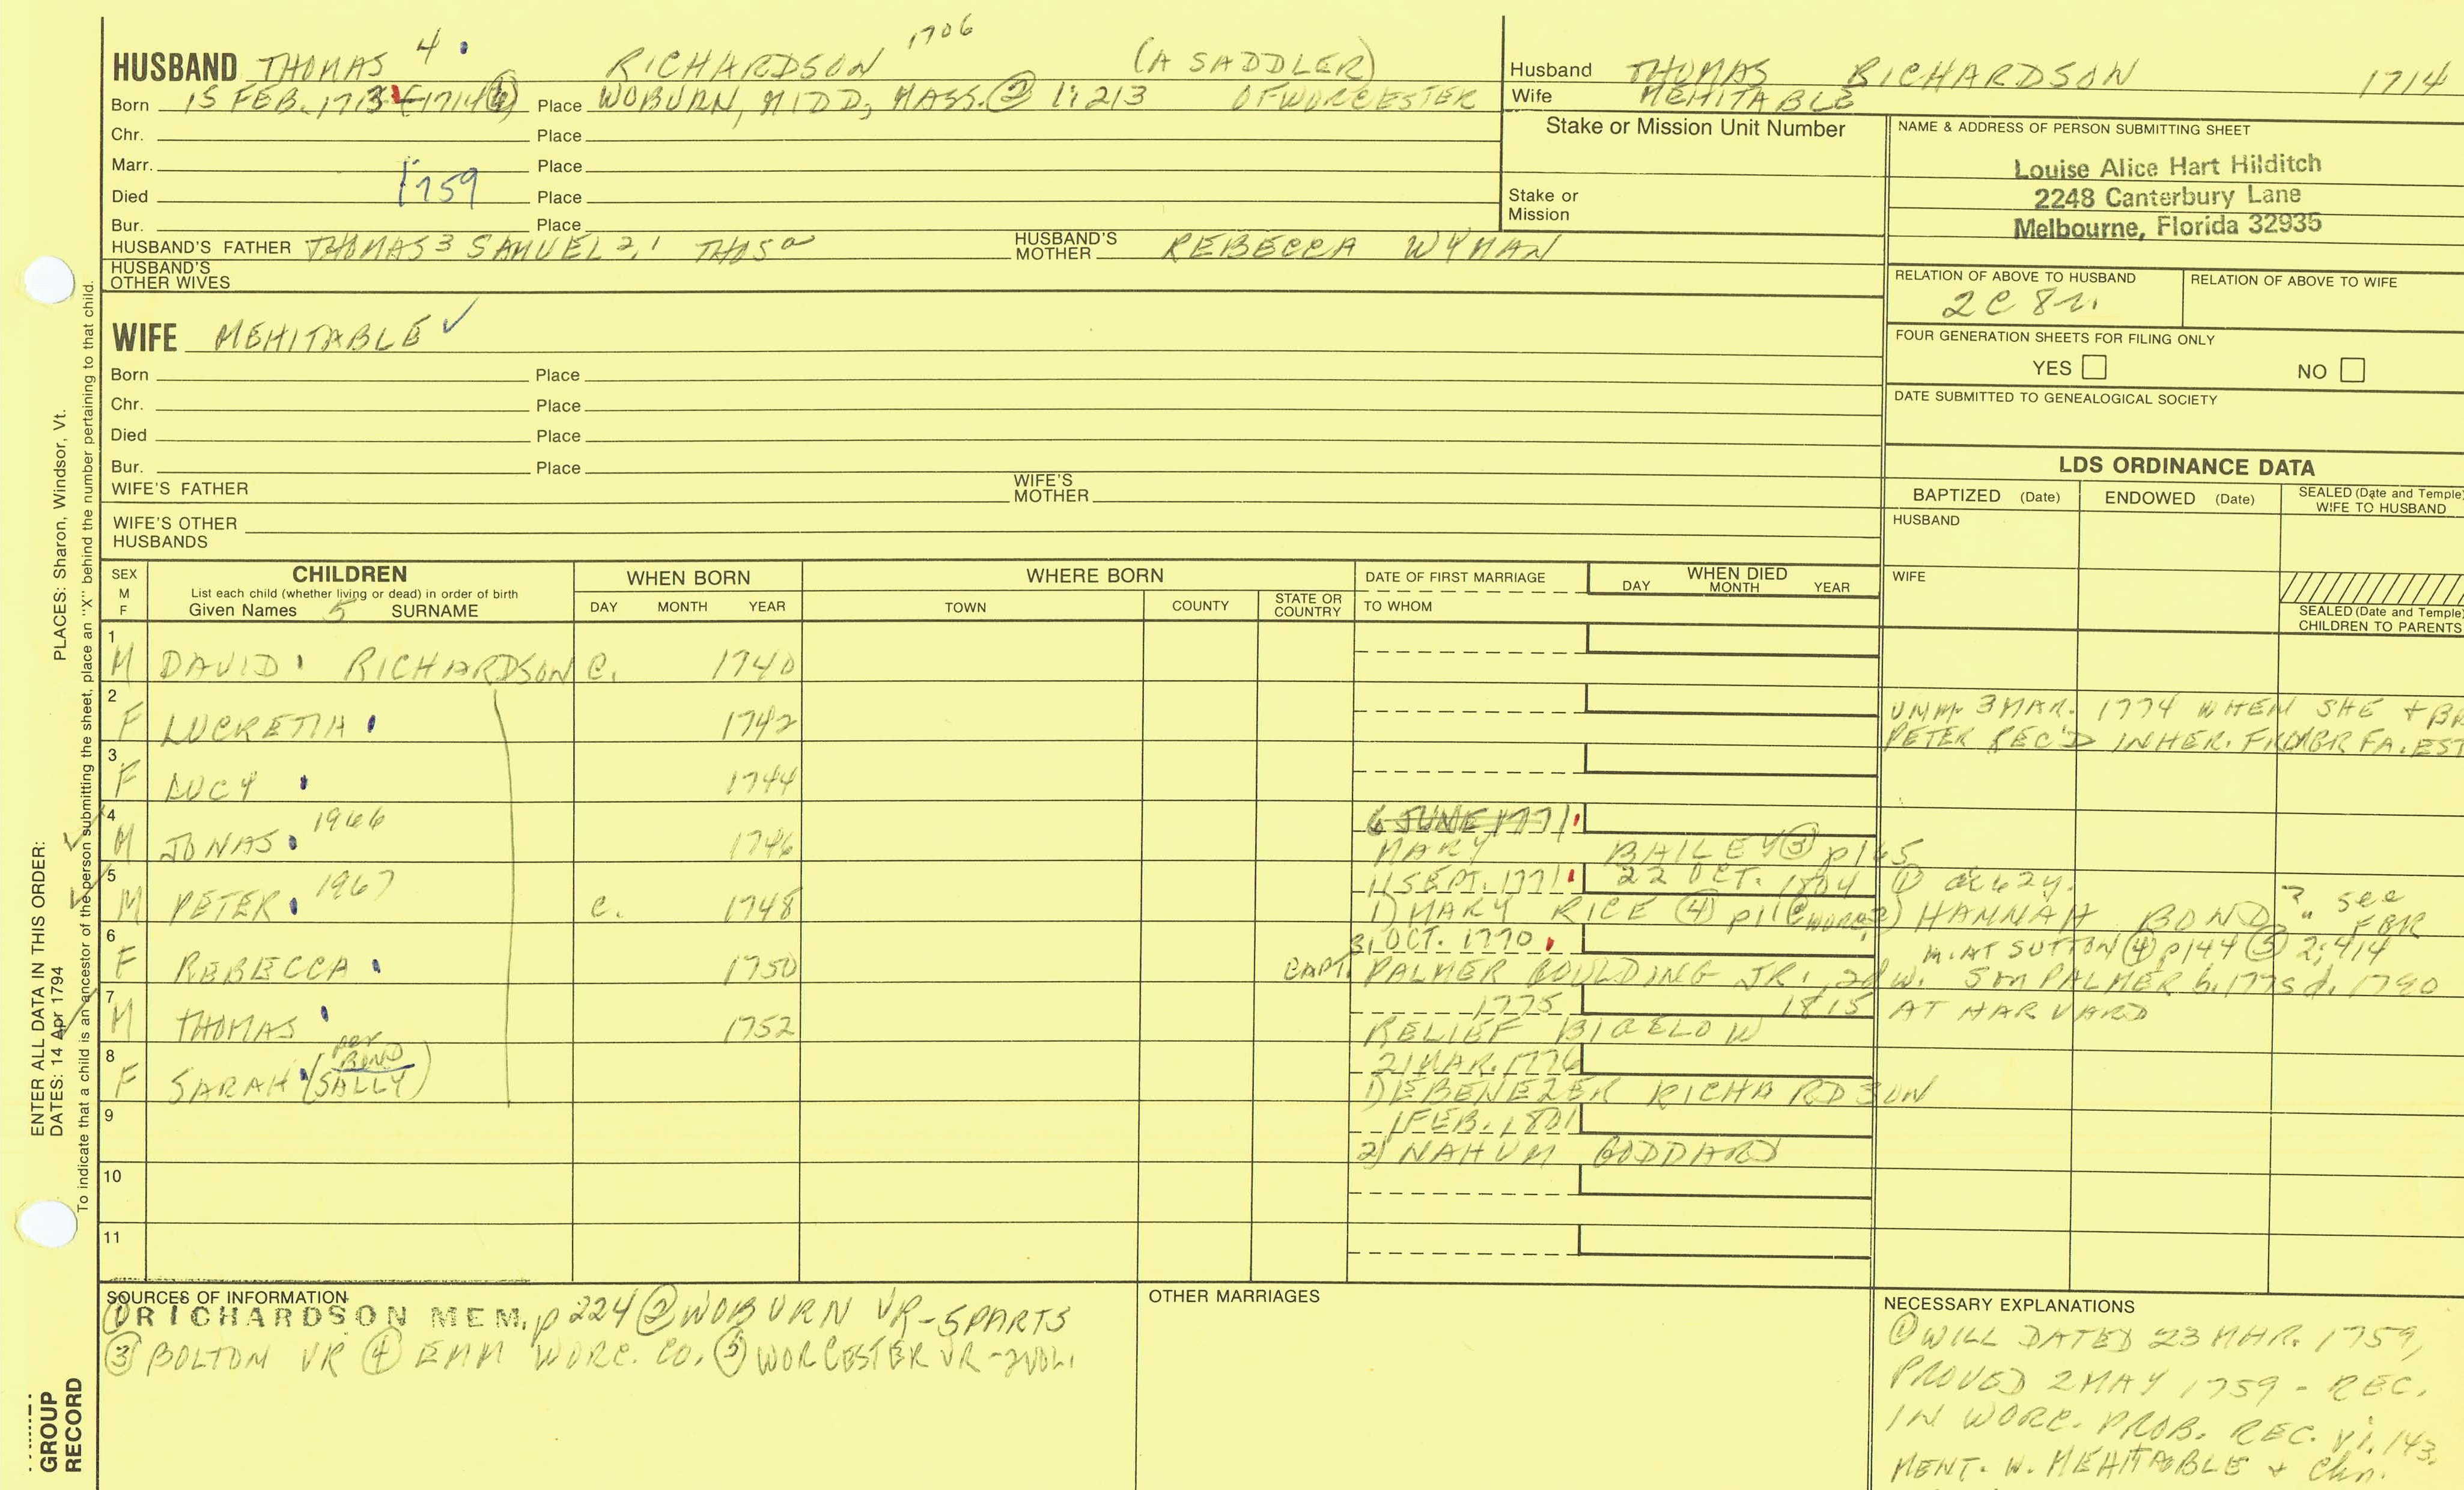 HUSBAND THOMAS 4 RICHARDSON 1706 (A SADDLER)
Born 15 FEB. 1713 Place WOBURN, MIDD, MASS. ② 1:213 OF WORCESTER
Chr. Place
Marr. Place
Died 1759 Place
Bur. Place
HUSBAND'S FATHER THOMAS 3 SAMUEL 2, 1 THOS HUSBAND'S MOTHER REBECCA WYMAN
HUSBAND'S OTHER WIVES
Husband THOMAS RICHARDSON 1714
Wife MEHITABLE
Stake or Mission Unit Number
Stake or Mission
NAME & ADDRESS OF PERSON SUBMITTING SHEET
Louise Alice Hart Hilditch
2248 Canterbury Lane
Melbourne, Florida 32935
RELATION OF ABOVE TO HUSBAND RELATION OF ABOVE TO WIFE
2C 8r.
FOUR GENERATION SHEETS FOR FILING ONLY
YES NO
DATE SUBMITTED TO GENEALOGICAL SOCIETY
WIFE MEHITABLE ✓
Born Place
Chr. Place
Died Place
Bur. Place
WIFE'S FATHER WIFE'S MOTHER
WIFE'S OTHER HUSBANDS
LDS ORDINANCE DATA
BAPTIZED (Date) ENDOWED (Date) SEALED (Date and Temple) WIFE TO HUSBAND
HUSBAND
WIFE
SEALED (Date and Temple) CHILDREN TO PARENTS
SEX M F
CHILDREN
List each child (whether living or dead) in order of birth
Given Names 5 SURNAME
WHEN BORN
DAY MONTH YEAR
WHERE BORN
TOWN COUNTY STATE OR COUNTRY
DATE OF FIRST MARRIAGE
TO WHOM
WHEN DIED
DAY MONTH YEAR
1 M DAVID RICHARDSON C. 1740
2 F LUCRETIA 1742
UNM 3 MAR. 1774 WHEN SHE + BR
PETER REC'D INHER. FROM BR FA. EST
3 F LUCY 1744
4 M JONAS 1966 1746 6 JUNE 1771
MARY BAILEY ③ p 165
5 M PETER 1967 C. 1748 11 SEPT. 1771 22 OCT. 1804 ①
1) MARY RICE ④ p11 2) HANNAH BOND ? see
6 F REBECCA 1750 31 OCT. 1770 M. AT SUTTON ④ p144 ⑤ 2;414
CAPT. PALMER GOULDING JR., 2d w. 5 m PALMER b. 1775 d. 1790
7 M THOMAS 1752 1775 1815 AT HARVARD
RELIEF BIGELOW
8 F SARAH (SALLY) per BOND 21 MAR. 1776
1) EBENEZER RICHARDSON
9 1 FEB. 1801
2) NAHUM GODDARD
10
11
SOURCES OF INFORMATION
① RICHARDSON MEM. p 224 ② WOBURN VR-5PARTS
③ BOLTON VR ④ EMM WORC. CO. ⑤ WORCESTER VR-2VOL.
OTHER MARRIAGES
NECESSARY EXPLANATIONS
① WILL DATED 23 MAR. 1759,
PROVED 2 MAY 1759 - REC.
IN WORC. PROB. REC. vi. 143.
MENT. W. MEHITABLE + Chn.
PLACES: Sharon, Windsor, Vt.
ENTER ALL DATA IN THIS ORDER:
DATES: 14 Apr 1794
To indicate that a child is an ancestor of the person submitting the sheet, place an "X" behind the number pertaining to that child.
GROUP
RECORD